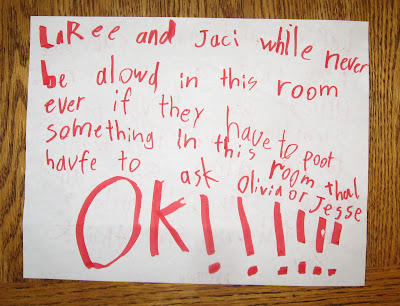 LaRee and Jaci while never
be alowd in this room
ever if they have to poot
something in this room thal
havfe to ask Olivia or Jesse
OK!!!!!!